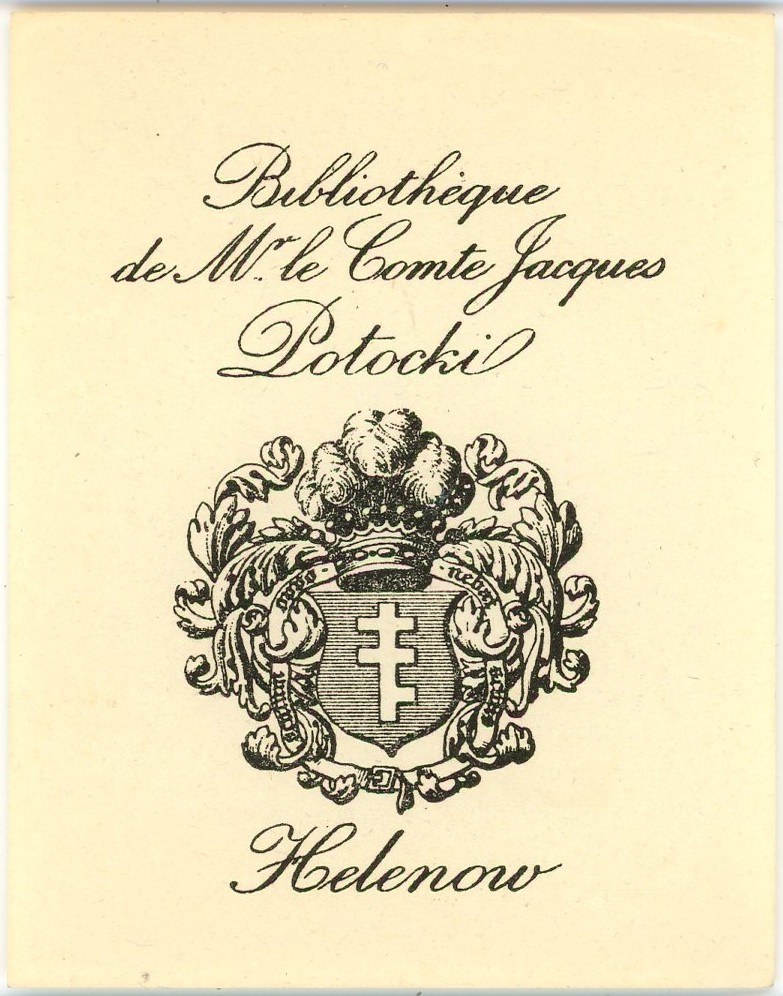 Bibliothèque
de Mr. le Comte Jacques
Potocki
Helenow